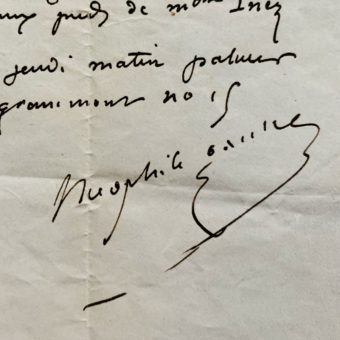 aux pieds de mon Inez
jeudi matin
grammont no 15
Theophile Gautier